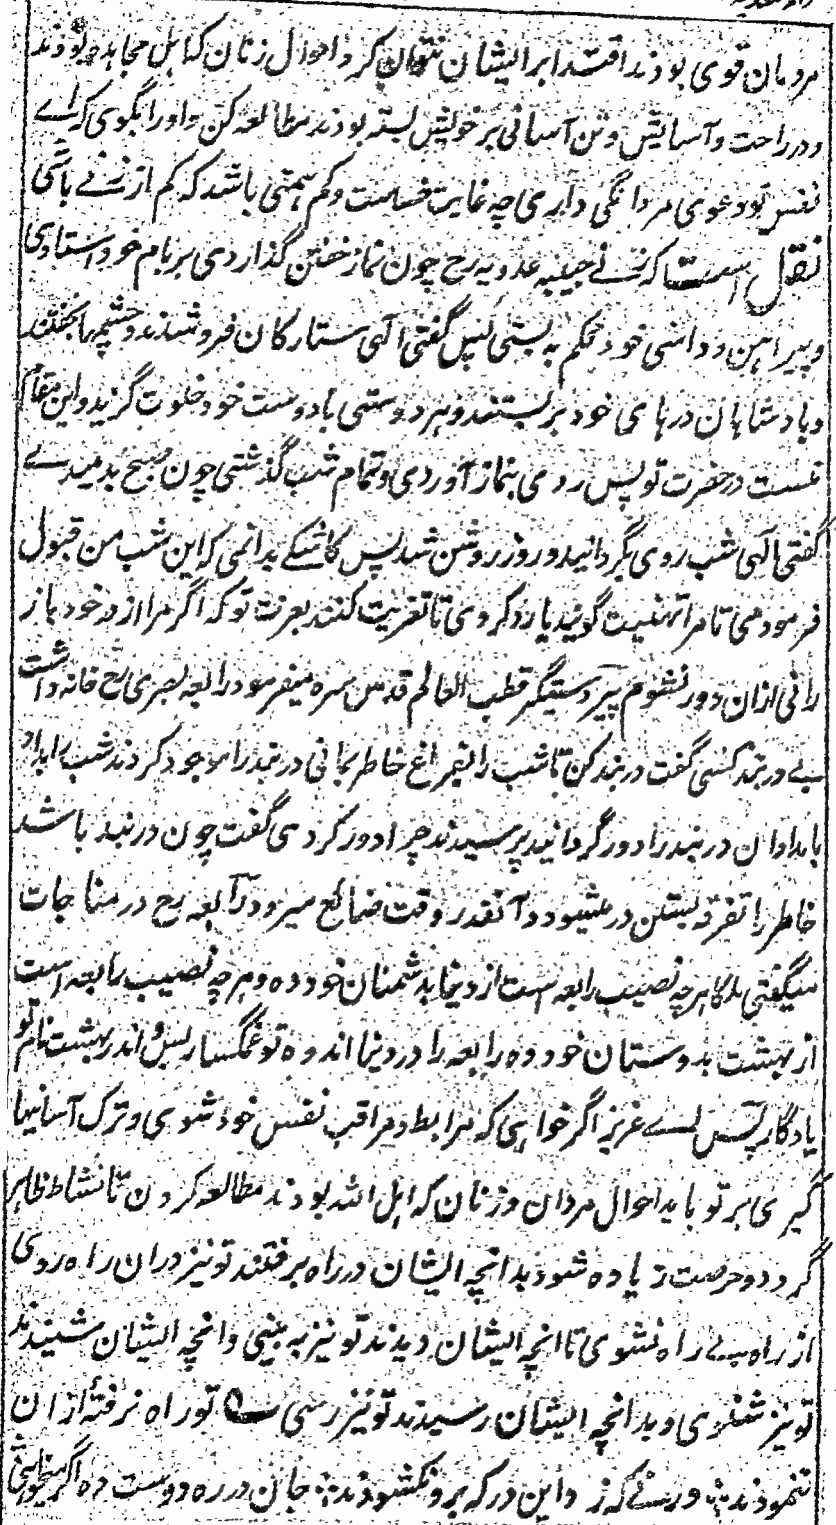 مردمان قوی بودند اقتدا بر ایشان نتوان کرد احوال زنان که اهل مجاهده بودند
و در راحت و آسایش و تن آسانی بر خویش بسته بودند مطالعه کن و او را بگوی که اے
نفس تو دعوی مردانگی داری چه غایت خست و کم همتی باشد که کم از زنے باشی
نقل است که زنے حبیبه عدویه رح چون نماز خفتن گذاردی بر بام خود استادی
و پیراهن و دامنی خود محکم به بستی پس گفتی الهی ستارگان فرو شدند و چشمها بخفتند
و بادشاهان درهای خود بر بستند و هر دوستی با دوست خود خلوت گزید و این مقام
منست در حضرت تو پس روی بنماز آوردی و تمام شب گذشتی چون صبح بدمیدے
گفتی الهی شب روی بگردانید و روز روشن شد پس کاشکے بدانمی که این شب من قبول
فرمودمی تا مرا تهنیت گویند یا رد کردی تا تعزیت کنند بعزت تو که اگر مرا از در خود باز
رانی ازان دور نشوم پیر دستگیر قطب العالم قدس سره میفرمود رابعه بصری رح خانه داشت
بے در بند کسی گفت در بند کن تا شب را بفراغ خاطر بمانی در بند را موجود کردند شب را بداد
بامدادان در بند را دور گردانید پرسیدند چرا دور کردی گفت چون در بند باشد
خاطر را تفرقه بستن در میشود و آنقدر وقت ضائع میرود رابعه رح در مناجات
میگفتی ملکا هرچه نصیب رابعه است از دنیا بدشمنان خود ده و هرچه نصیب رابعه است
از بهشت بدوستان خود ده رابعه را در دنیا اندوه تو غمگسار بس و اندر بهشت نام تو
یادگار بس پس اے عزیز اگر خواهی که مرابط و مراقب نفس خود شوی و ترک آسانیها
گیری بر تو باید احوال مردان و زنان که اهل الله بودند مطالعه کردن تا نشاط ظاهر
گردد و حرصت زیاده شود بدانچه ایشان در راه برفتند تو نیز دران راه روی
از راه بے راه نشوی تا انچه ایشان دیدند تو نیز به بینی و انچه ایشان شنیدند
تو نیز شنوی و بدانچه ایشان رسیدند تو نیز رسی تو راه نرفتهٔ ازان
ننمودند ورنے که زد این در که برو نکشودند جان در ره دوست ده اگر میخواهی